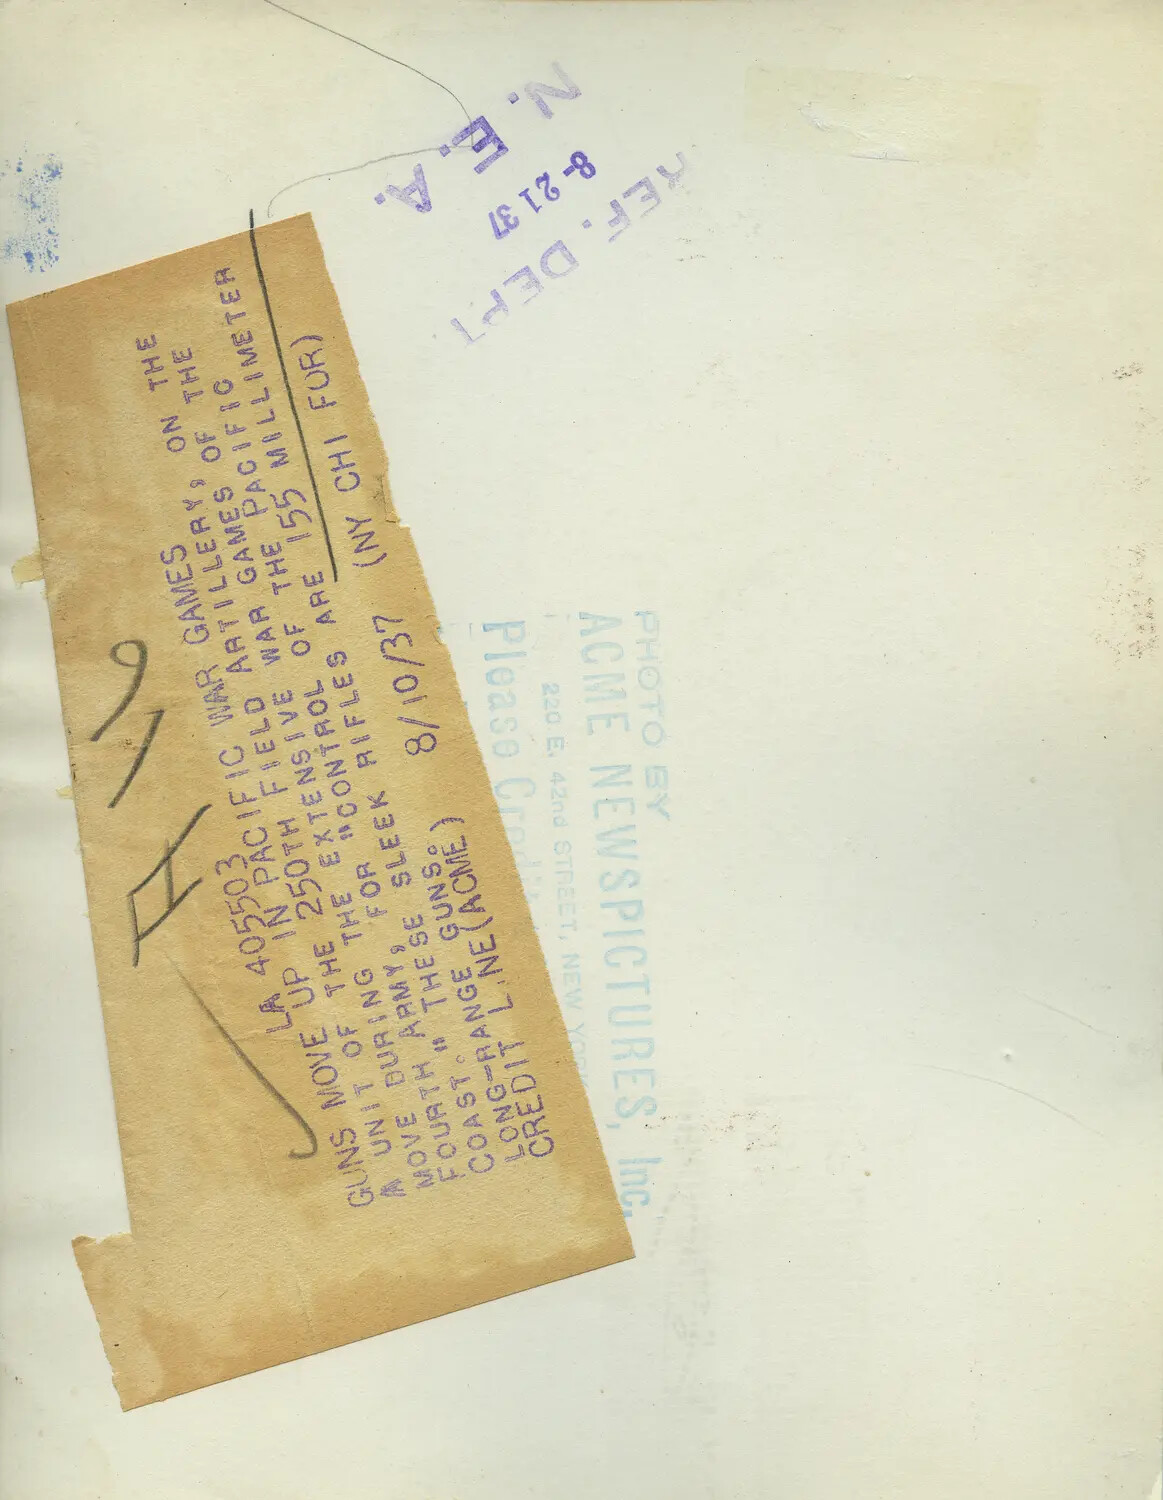 LA 405503
GUNS MOVE UP IN PACIFIC WAR GAMES
A UNIT OF THE 250TH FIELD ARTILLERY, ON THE
MOVE DURING THE EXTENSIVE WAR GAMES OF THE
FOURTH ARMY, FOR "CONTROL OF THE PACIFIC
COAST." THESE SLEEK RIFLES ARE 155 MILLIMETER
LONG-RANGE GUNS.
CREDIT LINE (ACME) 8/10/37 (NY CHI FUR)
N. E. A.
8-21 37
REF. DEPT.
PHOTO BY
ACME NEWSPICTURES, Inc.
220 E. 42nd STREET, NEW YORK
Please Credit